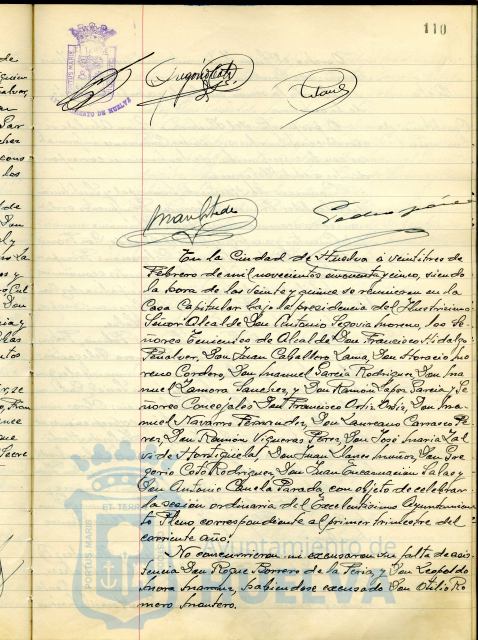 110
En la Ciudad de Huelva a veintitres de
Febrero de mil novecientos cincuenta y cinco, siendo
la hora de las veinte y quince se reunieron en la
Casa Capitular bajo la presidencia del Ilustrisimo
Señor Alcalde Don Antonio Segovia Moreno, los Se-
ñores Tenientes de Alcalde Don Francisco Hidalgo
Peñalver, Don Juan Caballero Lama, Don Horacio Mo
reno Cordero, Don Manuel Garcia Rodriguez, Don Ma
nuel Zamora Sanchez, y Don Ramón Garcia y Se
ñores Concejales Don Francisco Ortiz Ortiz, Don Ma-
nuel Navarro Fernandez, Don Laureano Carrasco Pé
rez, Don Ramón Vigueras Pérez, Don José Maria
de Don Juan Llanes Muñoz, Don Gre
gorio Coto Rodriguez, Don Juan Encarnacion Salas y
Don Antonio Canela Parada, con objeto de celebrar
la sesion ordinaria del Excelentisimo Ayuntamien
to Pleno correspondiente al primer trimestre del
corriente año.
No concurrieron ni excusaron su falta de asis
tencia Don Roque Borrero de la Feria, y Don Leopoldo
Mora habiendose excusado Don Otilio Ro
mero
PORTUS MARIS
ET TERRAE
Ayuntamiento de
HUELVA
AYUNTAMIENTO DE HUELVA